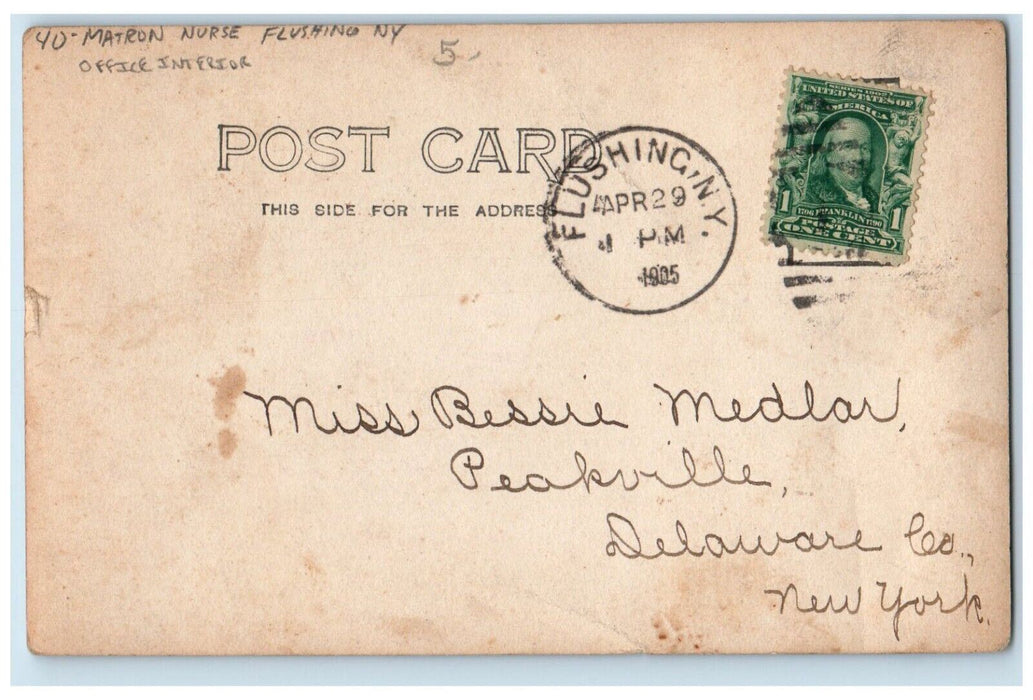 40 - MATRON NURSE FLUSHING NY
OFFICE INTERIOR
5-
POST CARD
THIS SIDE FOR THE ADDRESS
FLUSHING, N.Y.
APR 29
PM
1905
SERIES 1902
UNITED STATES OF
AMERICA
1 1
1706 FRANKLIN 1790
POSTAGE
ONE CENT
Miss Bessie Medlar,
Peakville,
Delaware Co.,
New York.